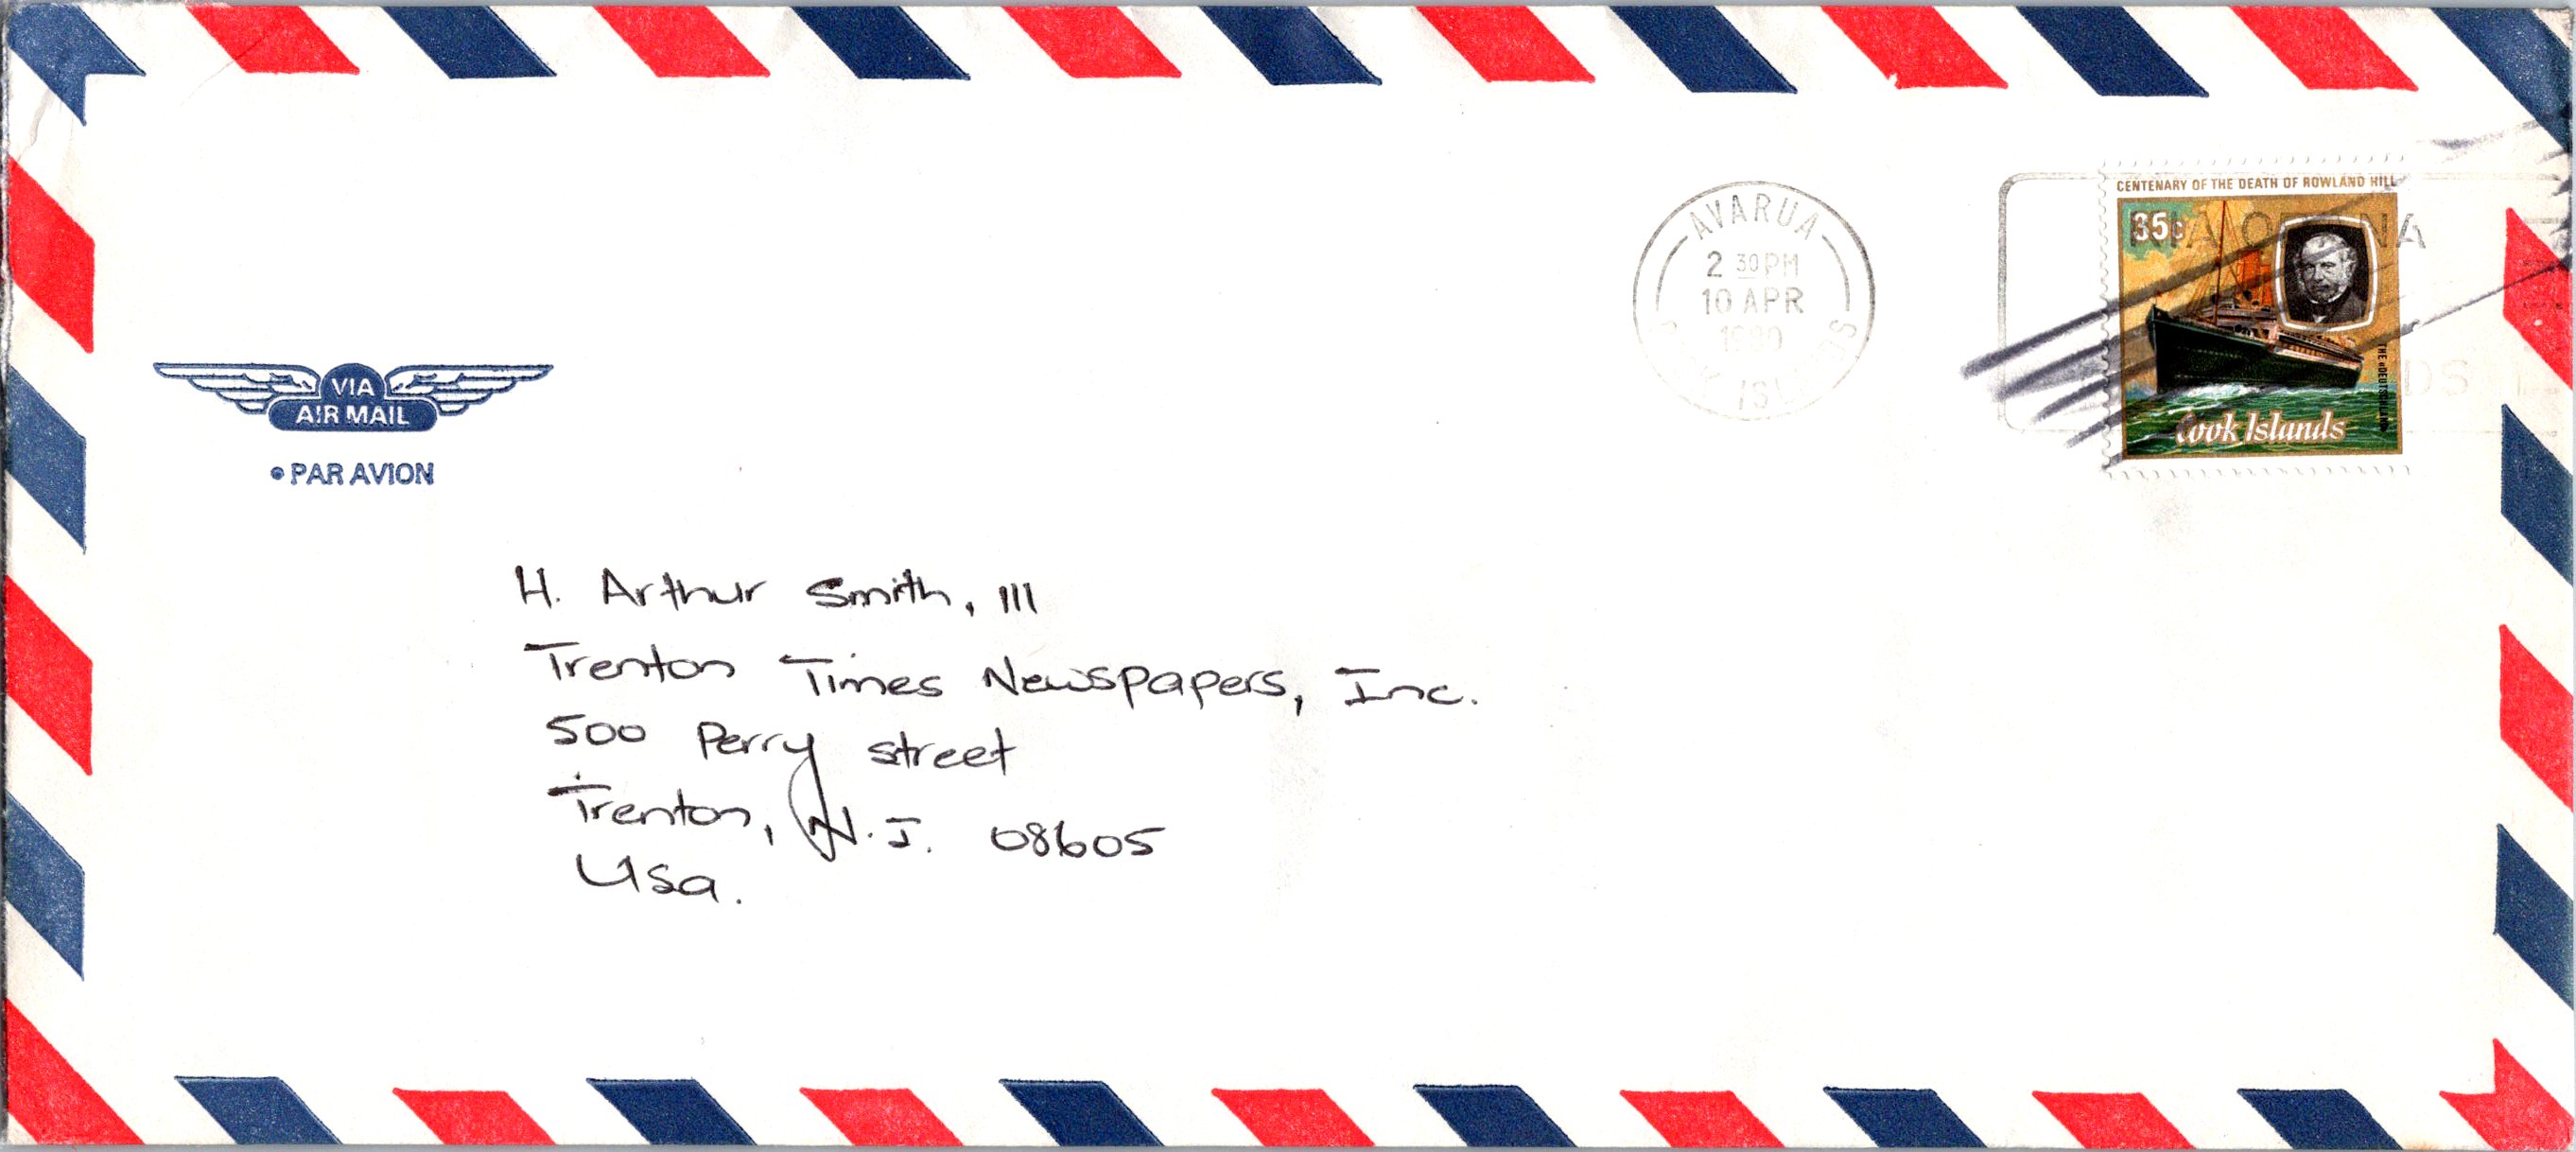 CENTENARY OF THE DEATH OF ROWLAND HILL
35c
THE «DEUTSCHLAND»
Cook Islands
AVARUA
2 30 PM
10 APR
1980
VIA
AIR MAIL
• PAR AVION
H. Arthur Smith, III
Trenton Times Newspapers, Inc.
500 Perry street
Trenton, N.J. 08605
Usa.